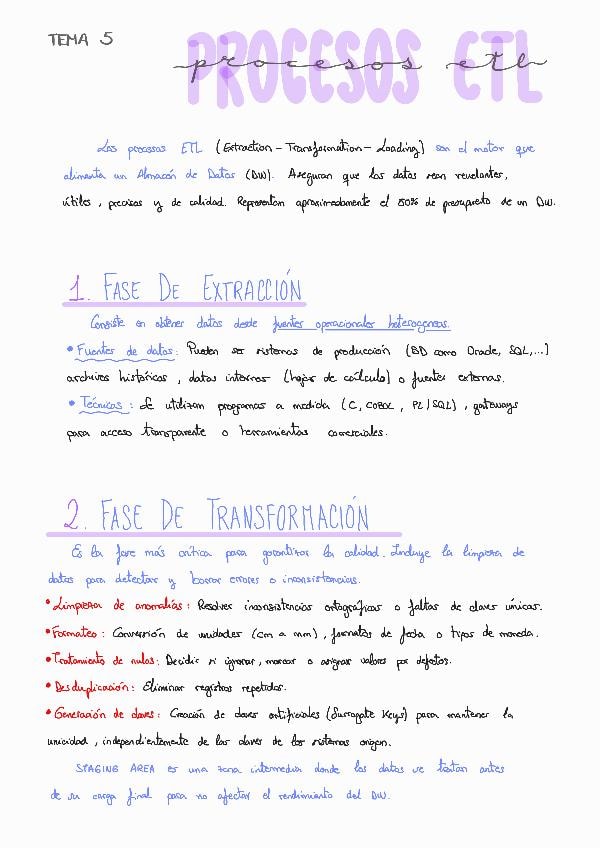 TEMA 5
PROCESOS ETL
procesos etl
Los procesos ETL (Extraction - Transformation - Loading) son el motor que
alimenta un Almacén de Datos (DW). Aseguran que los datos sean revelantes,
útiles, precisos y de calidad. Representan aproximadamente el 80% de presupuesto de un DW.
1. FASE DE EXTRACCIÓN
Consiste en obtener datos desde fuentes operacionales heterogeneas.
• Fuentes de datos: Pueden ser sistemas de producción (BD como Oracle, SQL,...)
archivos históricos, datos internos (hojas de cálculo) o fuentes externas.
• Técnicas: Se utilizan programas a medida (C, COBOL, PL/SQL), gateways
para acceso transparente o herramientas comerciales.
2. FASE DE TRANSFORMACIÓN
Es la fase más crítica para garantizar la calidad. Incluye la limpieza de
datos para detectar y borrar errores o inconsistencias.
• Limpieza de anomalías: Resolver inconsistencias ortográficas o faltas de claves únicas.
• Formateo: Conversión de unidades (cm a mm), formatos de fecha o tipos de moneda.
• Tratamiento de nulos: Decidir si ignorar, marcar o asignar valores por defectos.
• Desduplicación: Eliminar registros repetidos.
• Generación de claves: Creación de claves artificiales (Surrogate Keys) para mantener la
unicidad, independientemente de las claves de los sistemas origen.
STAGING AREA es una zona intermedia donde los datos se tratan antes
de su carga final para no afectar el rendimiento del DW.